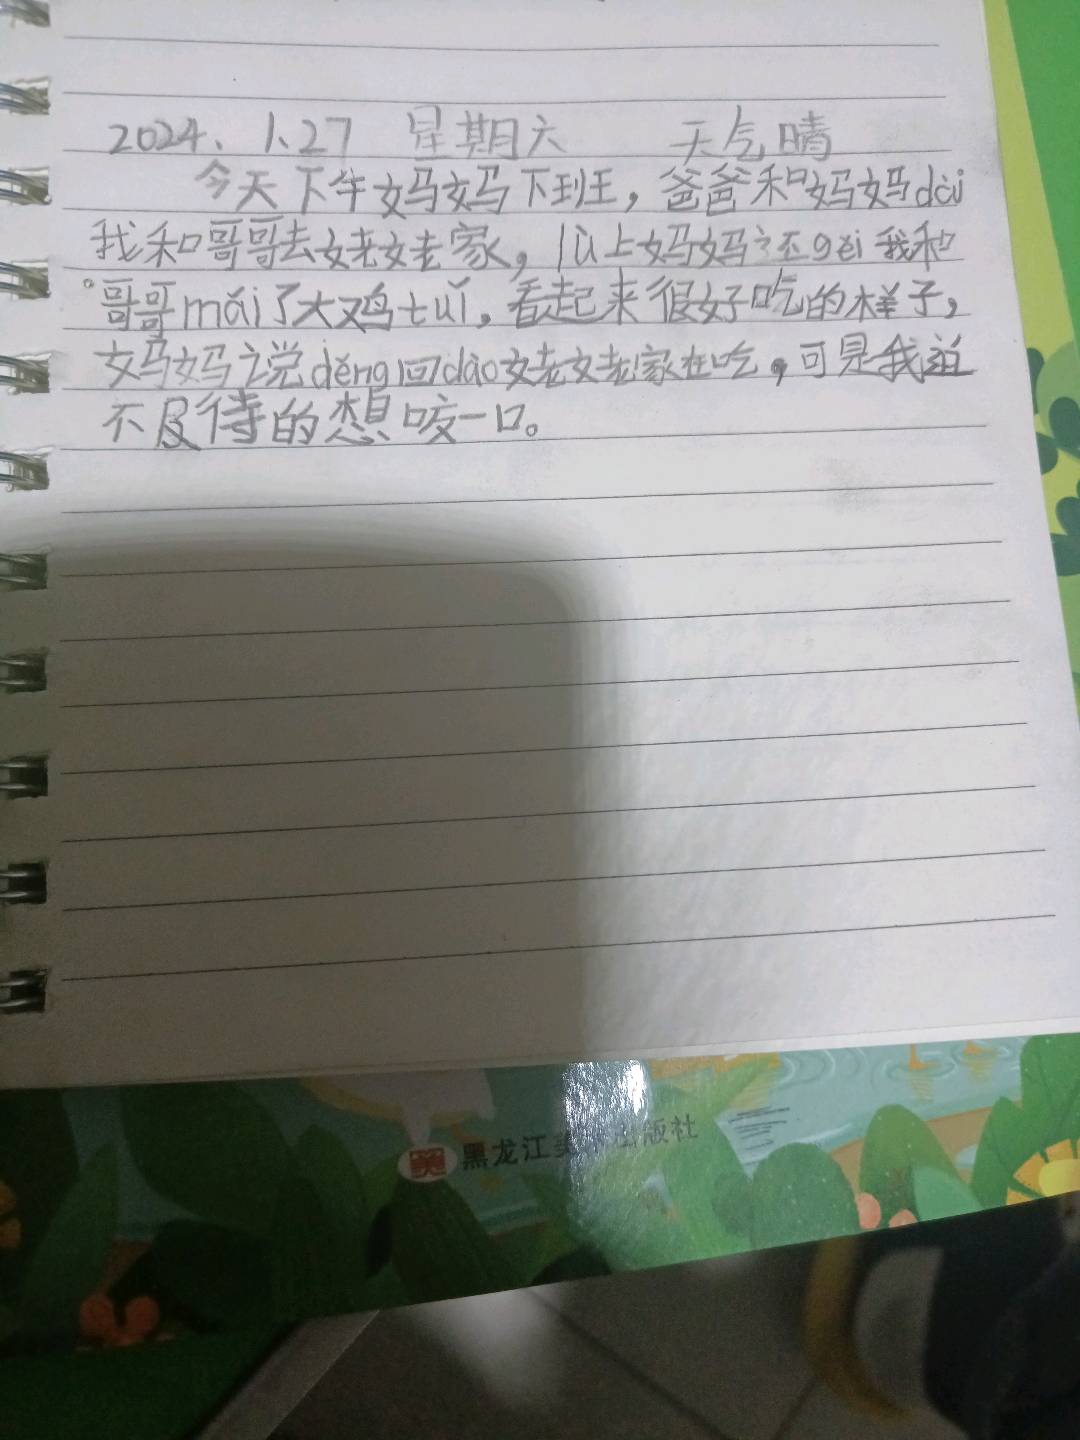 2024、1、27 星期六 天气晴
今天下午妈妈下班，爸爸和妈妈dài
我和哥哥去姥姥家，lù上妈妈还gěi我和
哥哥mǎi了大鸡tuǐ，看起来很好吃的样子，
妈妈说děng回dào姥姥家在吃，可是我迫
不及待的想咬一口。
黑龙江美术出版社